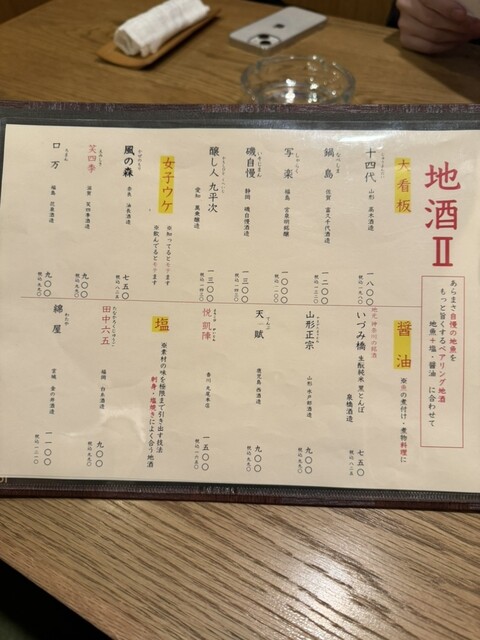 地酒Ⅱ
あらまさ自慢の地魚を
もっと旨くするペアリング地酒
地魚+塩・醤油 に合わせて
大看板
十四代 山形 高木酒造
一八〇〇
鍋島 佐賀 富久千代酒造
一二〇〇
写楽 福島 宮泉銘醸
一〇〇〇
磯自慢 静岡 磯自慢酒造
一三〇〇
醸し人 九平次 愛知 萬乗醸造
一三〇〇
女子ウケ
※知ってるとモテます
※飲んでるとモテます
風の森 奈良 油長酒造
七五〇
笑四季 滋賀 笑四季酒造
九〇〇
ロ万 福島 花泉酒造
九〇〇
醤油
※魚の煮付け・煮物料理に
地元 神奈川の銘酒
いづみ橋 生酛純米 黒とんぼ
泉橋酒造
七五〇
山形正宗 山形 水戸部酒造
九〇〇
天賦 鹿児島 西酒造
九〇〇
悦凱陣 香川 丸尾本店
一五〇〇
塩
※素材の味を極限まで引き出す技法
刺身・塩焼きによく合う地酒
田中六五 福岡 白糸酒造
九〇〇
綿屋 宮城 金の井酒造
一一〇〇